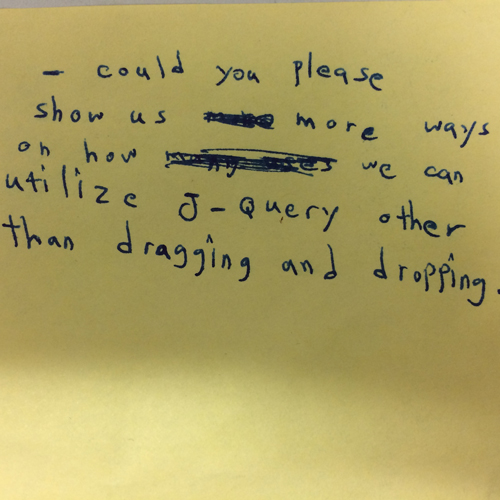 - could you please
show us more ways
on how we can
utilize J-Query other
than dragging and dropping.